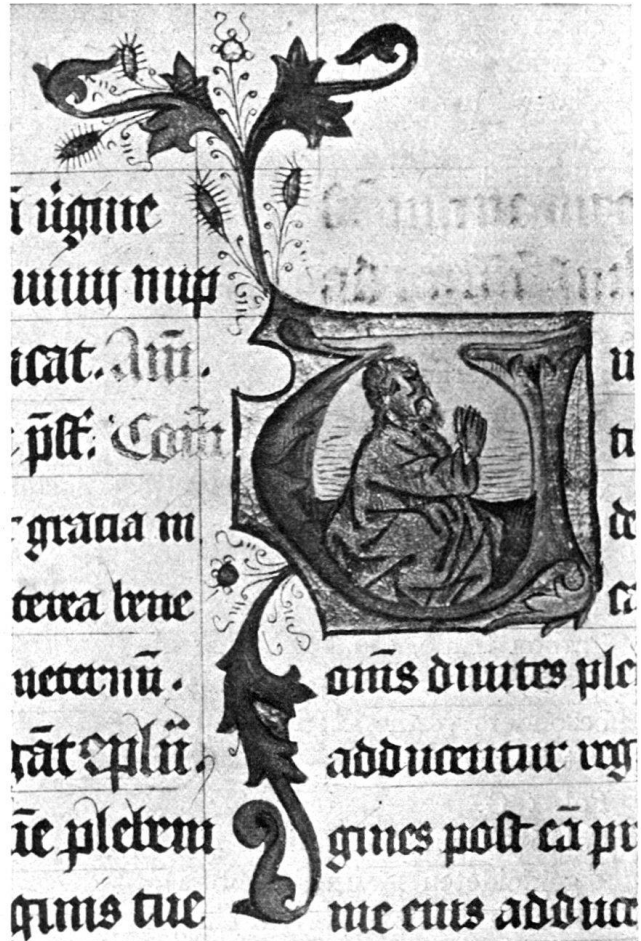 ūgine
nup
icat. Am̄.
p̄st̄. Com̄
gracia in
terea bene
neternū.
gāt Epl̄ū.
īe plebem
ginis tue
V u
tu
de
ca
om̄s diuites ple
adducentur reg
gines post eā pr
me eius adduce